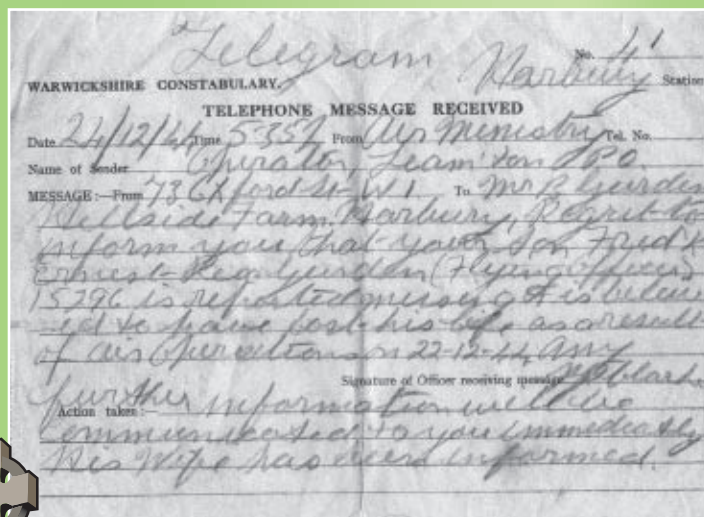 Telegram
No. 41
Harbury Station
WARWICKSHIRE CONSTABULARY.
TELEPHONE MESSAGE RECEIVED
Date 24/12/44 Time 5.35 From Air Ministry Tel. No.
Name of Sender Operator, Leam'ton P.O.
MESSAGE:—From 73 Oxford St W1 To Mr R Gurden
Hillside Farm. Harbury, Regret to
inform you that your Son Fredk
Ernest Gurden (Flying Officer)
is reported missing & is believ
ed to have lost his life as a result
of air Operations on 22-12-44, Any
Signature of Officer receiving message
further information will be
Action taken:—
communicated to you immediately
His Wife has been informed.